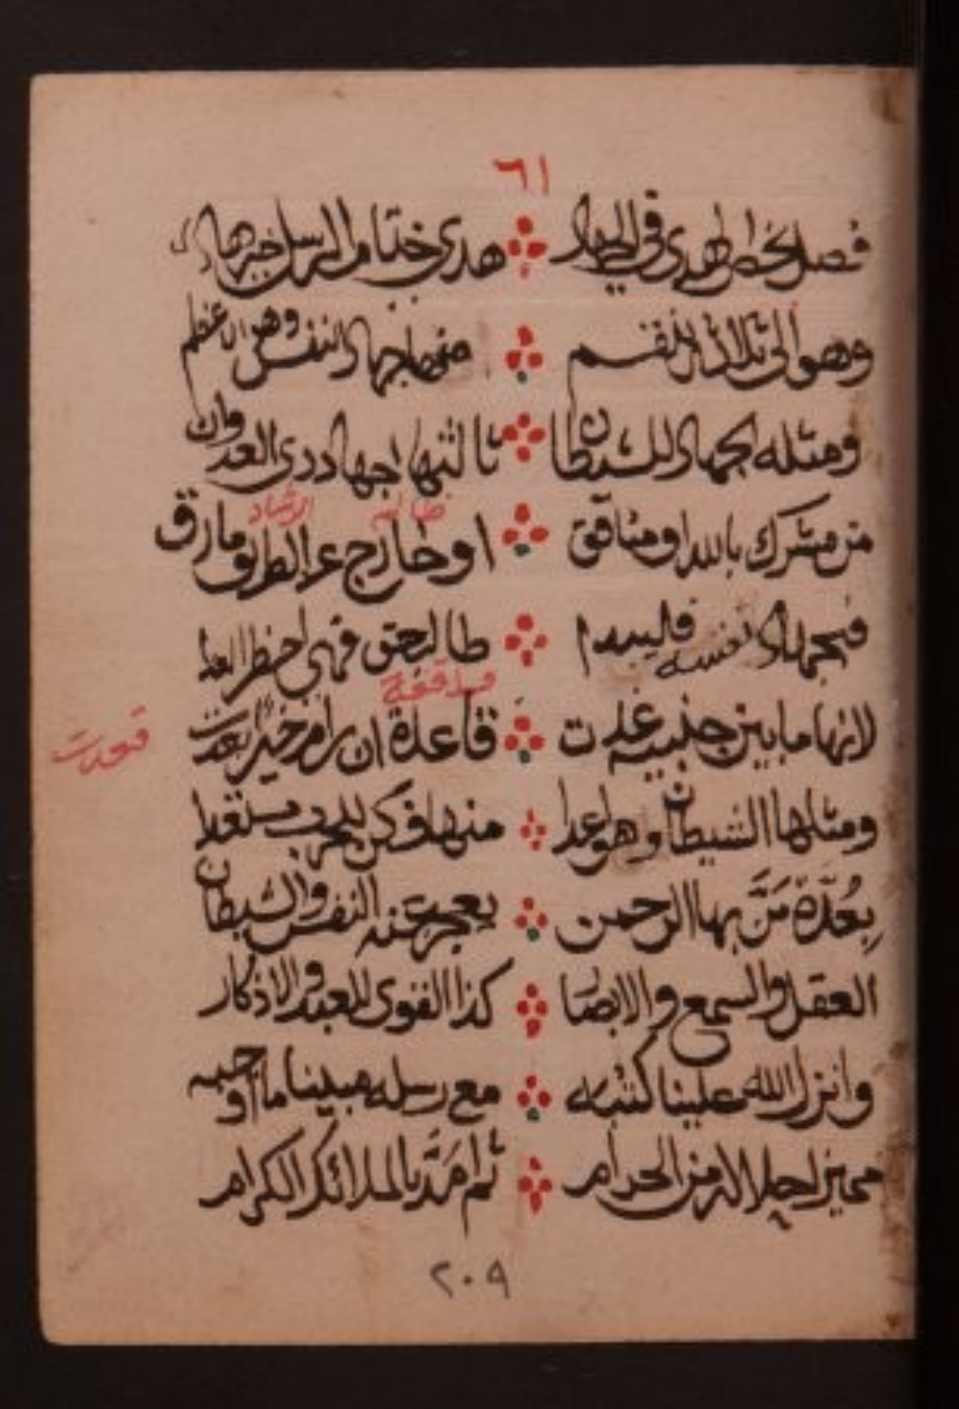 ٦١
فصل بخط الهدى في الجهاد هدى ختام الرسل خير هاد
وهو الى ثلاثة ينقسم منها جهاد النفس وهو الاعظم
ومثله جهاد للشيطان ثالثها جهاد ذي العدوان
ظالم الرشاد
من مشرك بالله او منافق او خارج عن الطريق مارق
فجهاد نفسه فليبدا طالب حق فهي اخطر العدا
مدافعة
لانها ما بين جنبيه غدت قاعدة ان رام خيرا بعدت
قعدت
ومثلها الشيطان وهو اعدا منها فكن للحرب مستعدا
بِعُدَّة مَنَّ بها الرحمن يعجز عنه النفس والشيطان
العقل والسمع والابصار كذا القوى للعبد والاذكار
وانزل الله علينا كتبه مع رسله مبينا ما اوجبه
مميزا حلاله من الحرام ثم امدَّ بالملائك الكرام
٢٠٩